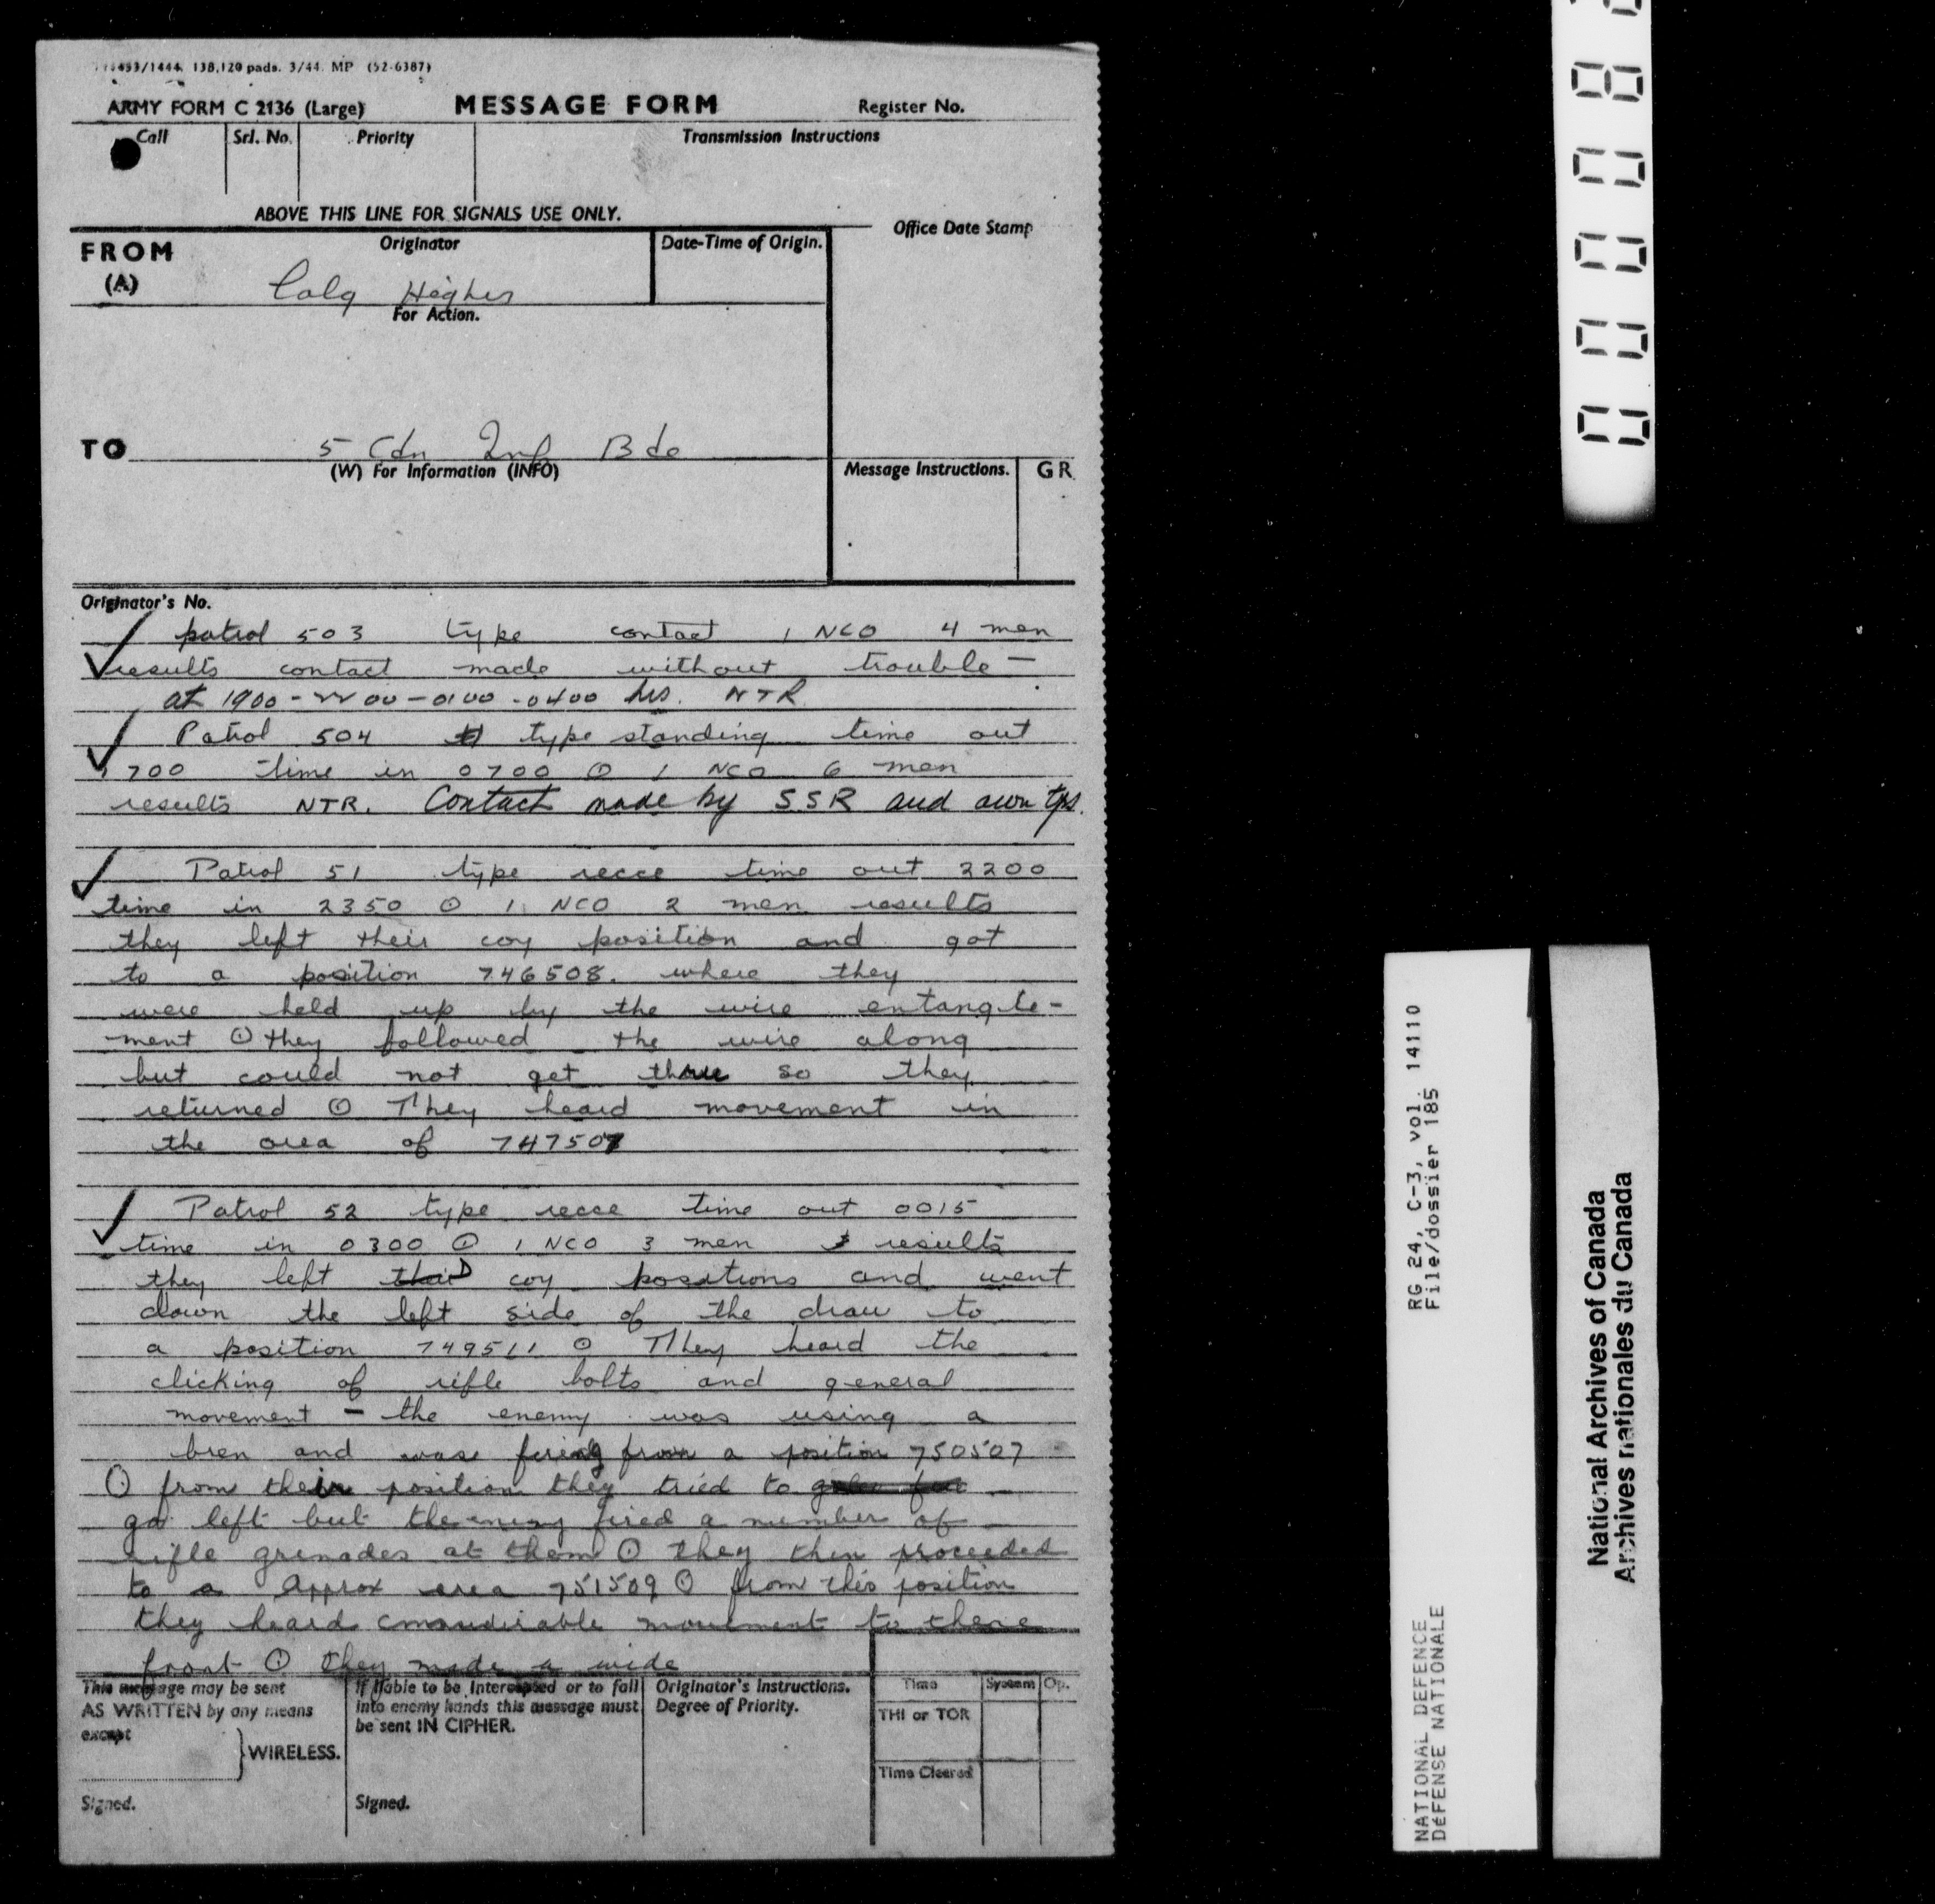 138,120 pads. 3/44. MP (52-6387)
ARMY FORM C 2136 (Large) MESSAGE FORM Register No.
Call Srl. No. Priority Transmission Instructions
ABOVE THIS LINE FOR SIGNALS USE ONLY.
Office Date Stamp
FROM (A) Originator Date-Time of Origin.
Calg Highrs
For Action.
TO 5 Cdn Inf Bde
(W) For Information (INFO) Message Instructions. GR.
Originator's No.
patrol 503 type contact 1 NCO 4 men
results contact made without trouble —
at 1900 - 2200 - 0100 - 0400 hrs. NTR
Patrol 504 type standing time out
1700 time in 0700 ⊙ 1 NCO 6 men
results NTR. Contact made by SSR and own tps.
Patrol 51 type recce time out 2200
time in 2350 ⊙ 1 NCO 2 men results
they left their coy position and got
to a position 746508. where they
were held up by the wire entangle-
ment ⊙ they followed the wire along
but could not get thru so they
returned ⊙ They heard movement in
the area of 747507
Patrol 52 type recce time out 0015
time in 0300 ⊙ 1 NCO 3 men results
they left their D coy positions and went
down the left side of the draw to
a position 749511 ⊙ They heard the
clicking of rifle bolts and general
movement - the enemy was using a
bren and was firing from a position 750507
⊙ from their position they tried to
go left but the enemy fired a number of
rifle grenades at them ⊙ they then proceeded
to a approx area 751509 ⊙ from this position
they heard considerable movement to there
front ⊙ they made a wide
This message may be sent AS WRITTEN by any means except
WIRELESS.
Signed.
If liable to be intercepted or to fall into enemy hands this message must be sent IN CIPHER.
Signed.
Originator's Instructions. Degree of Priority.
Time System Op.
THI or TOR
Time Cleared
RG 24, C-3, vol. 14110
File/dossier 185
NATIONAL DEFENCE
DÉFENSE NATIONALE
National Archives of Canada
Archives nationales du Canada